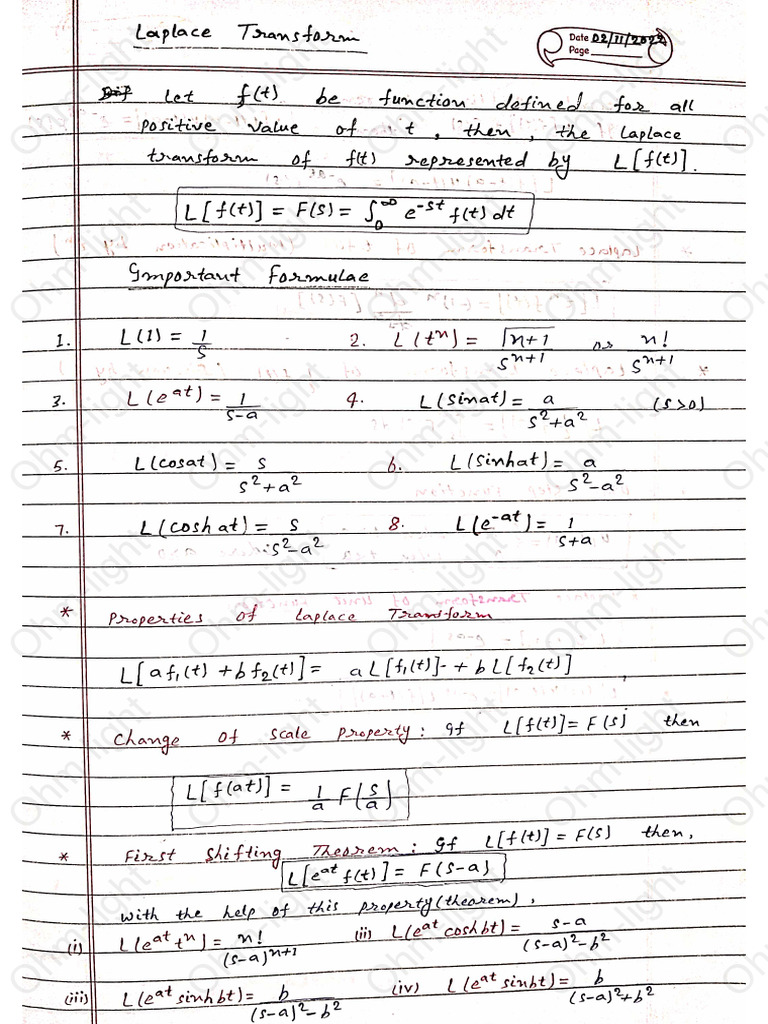 Laplace Transform
Date 02/11/2022
Page
Def Let f(t) be function defined for all
positive value of t, then, the Laplace
transform of f(t) represented by L[f(t)].
L[f(t)] = F(s) = ∫₀^∞ e^-st f(t) dt
Important Formulae
1. L(1) = 1/s 2. L(t^n) = Γn+1/s^n+1 or n!/s^n+1
3. L(e^at) = 1/s-a 4. L(sinat) = a/s²+a² (s>0)
5. L(cosat) = s/s²+a² 6. L(sinhat) = a/s²-a²
7. L(coshat) = s/s²-a² 8. L(e^-at) = 1/s+a
* Properties of Laplace Transform
L[af₁(t) + bf₂(t)] = aL[f₁(t)] + bL[f₂(t)]
* Change of scale property: If L[f(t)] = F(s) then
L[f(at)] = 1/a F(s/a)
* First Shifting Theorem: If L[f(t)] = F(s) then,
L[e^at f(t)] = F(s-a)
with the help of this property(theorem),
(i) L(e^at t^n) = n!/(s-a)^n+1 (ii) L(e^at coshbt) = s-a/(s-a)²-b²
(iii) L(e^at sinhbt) = b/(s-a)²-b² (iv) L(e^at sinbt) = b/(s-a)²+b²
Ohm-light